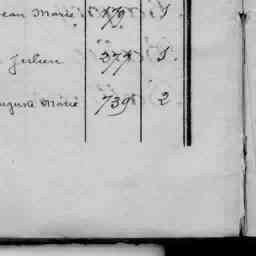 Jean Marie 179 1
Julien 377 1.
Auguste Marie 739 2